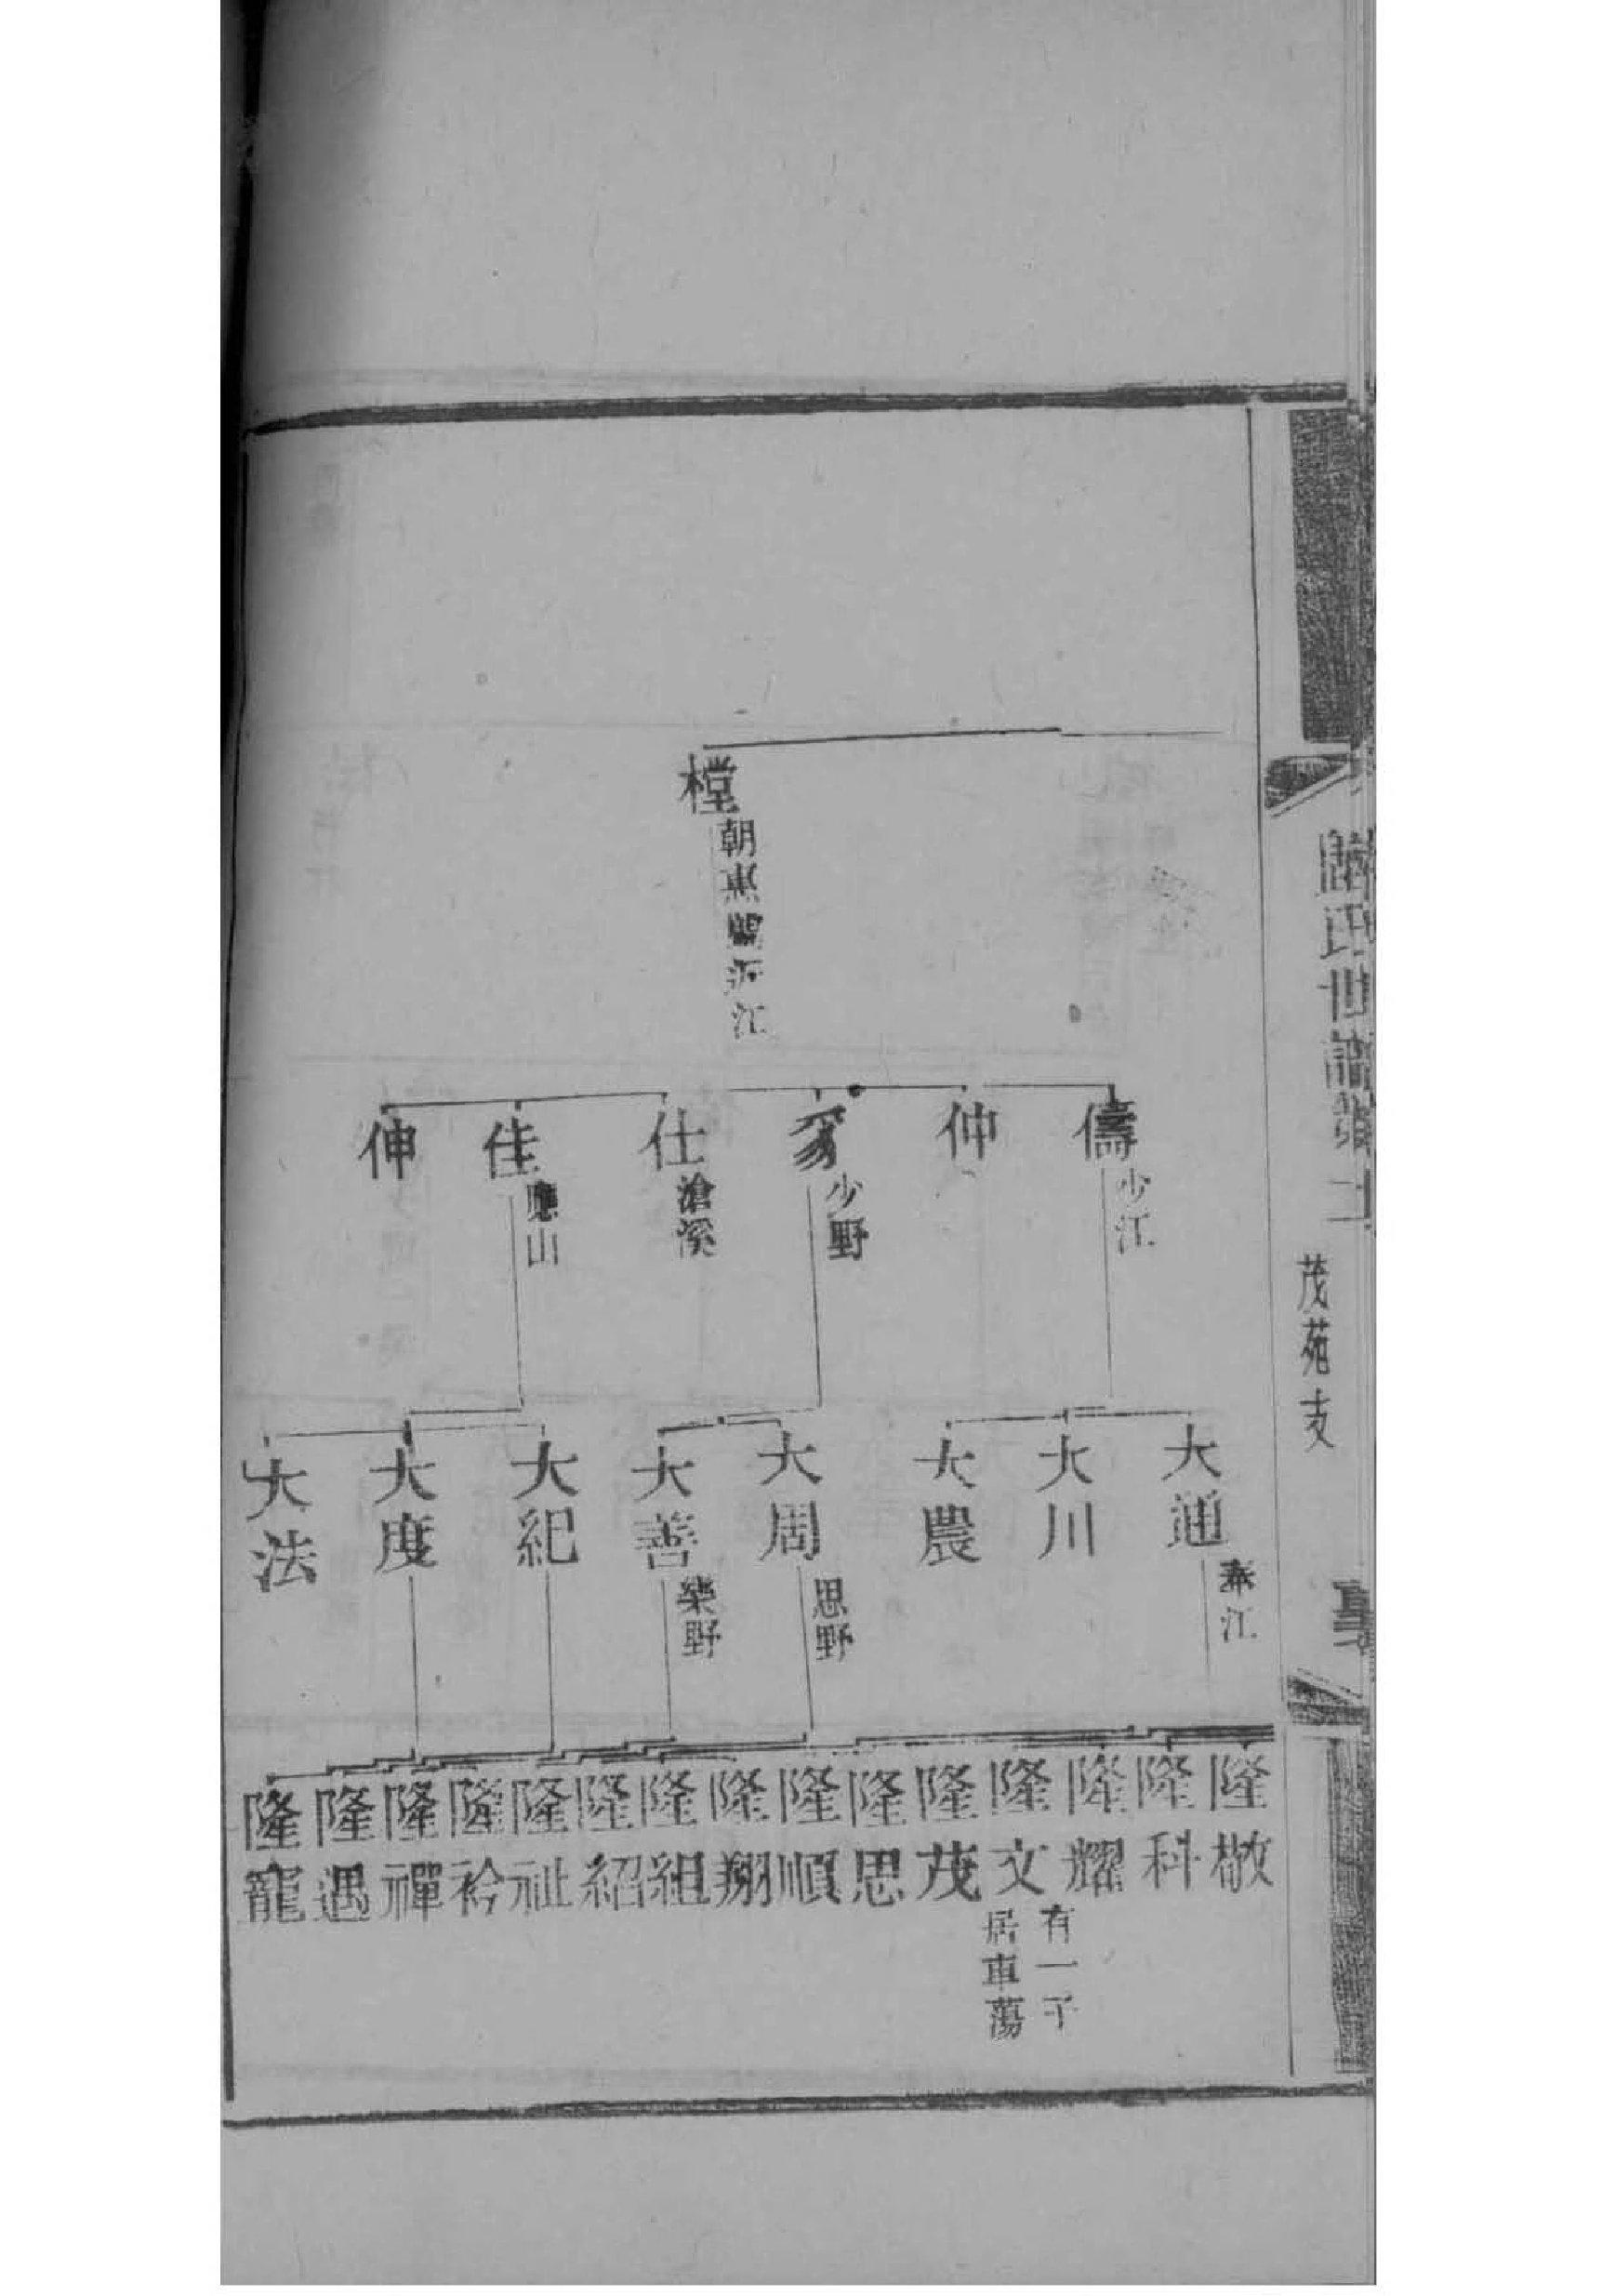 氏世譜
茂苑支
樘
朝
江
儔
少江
仲
豸
少野
仕
滄溪
佳
應山
伸
大通
泰江
大川
大農
大周
思野
大善
樂野
大紀
大度
大法
隆敬
隆科
隆耀
隆文
有一子
居車蕩
隆茂
隆思
隆順
隆翔
隆組
隆紹
隆祉
隆衿
隆禪
隆遇
隆寵